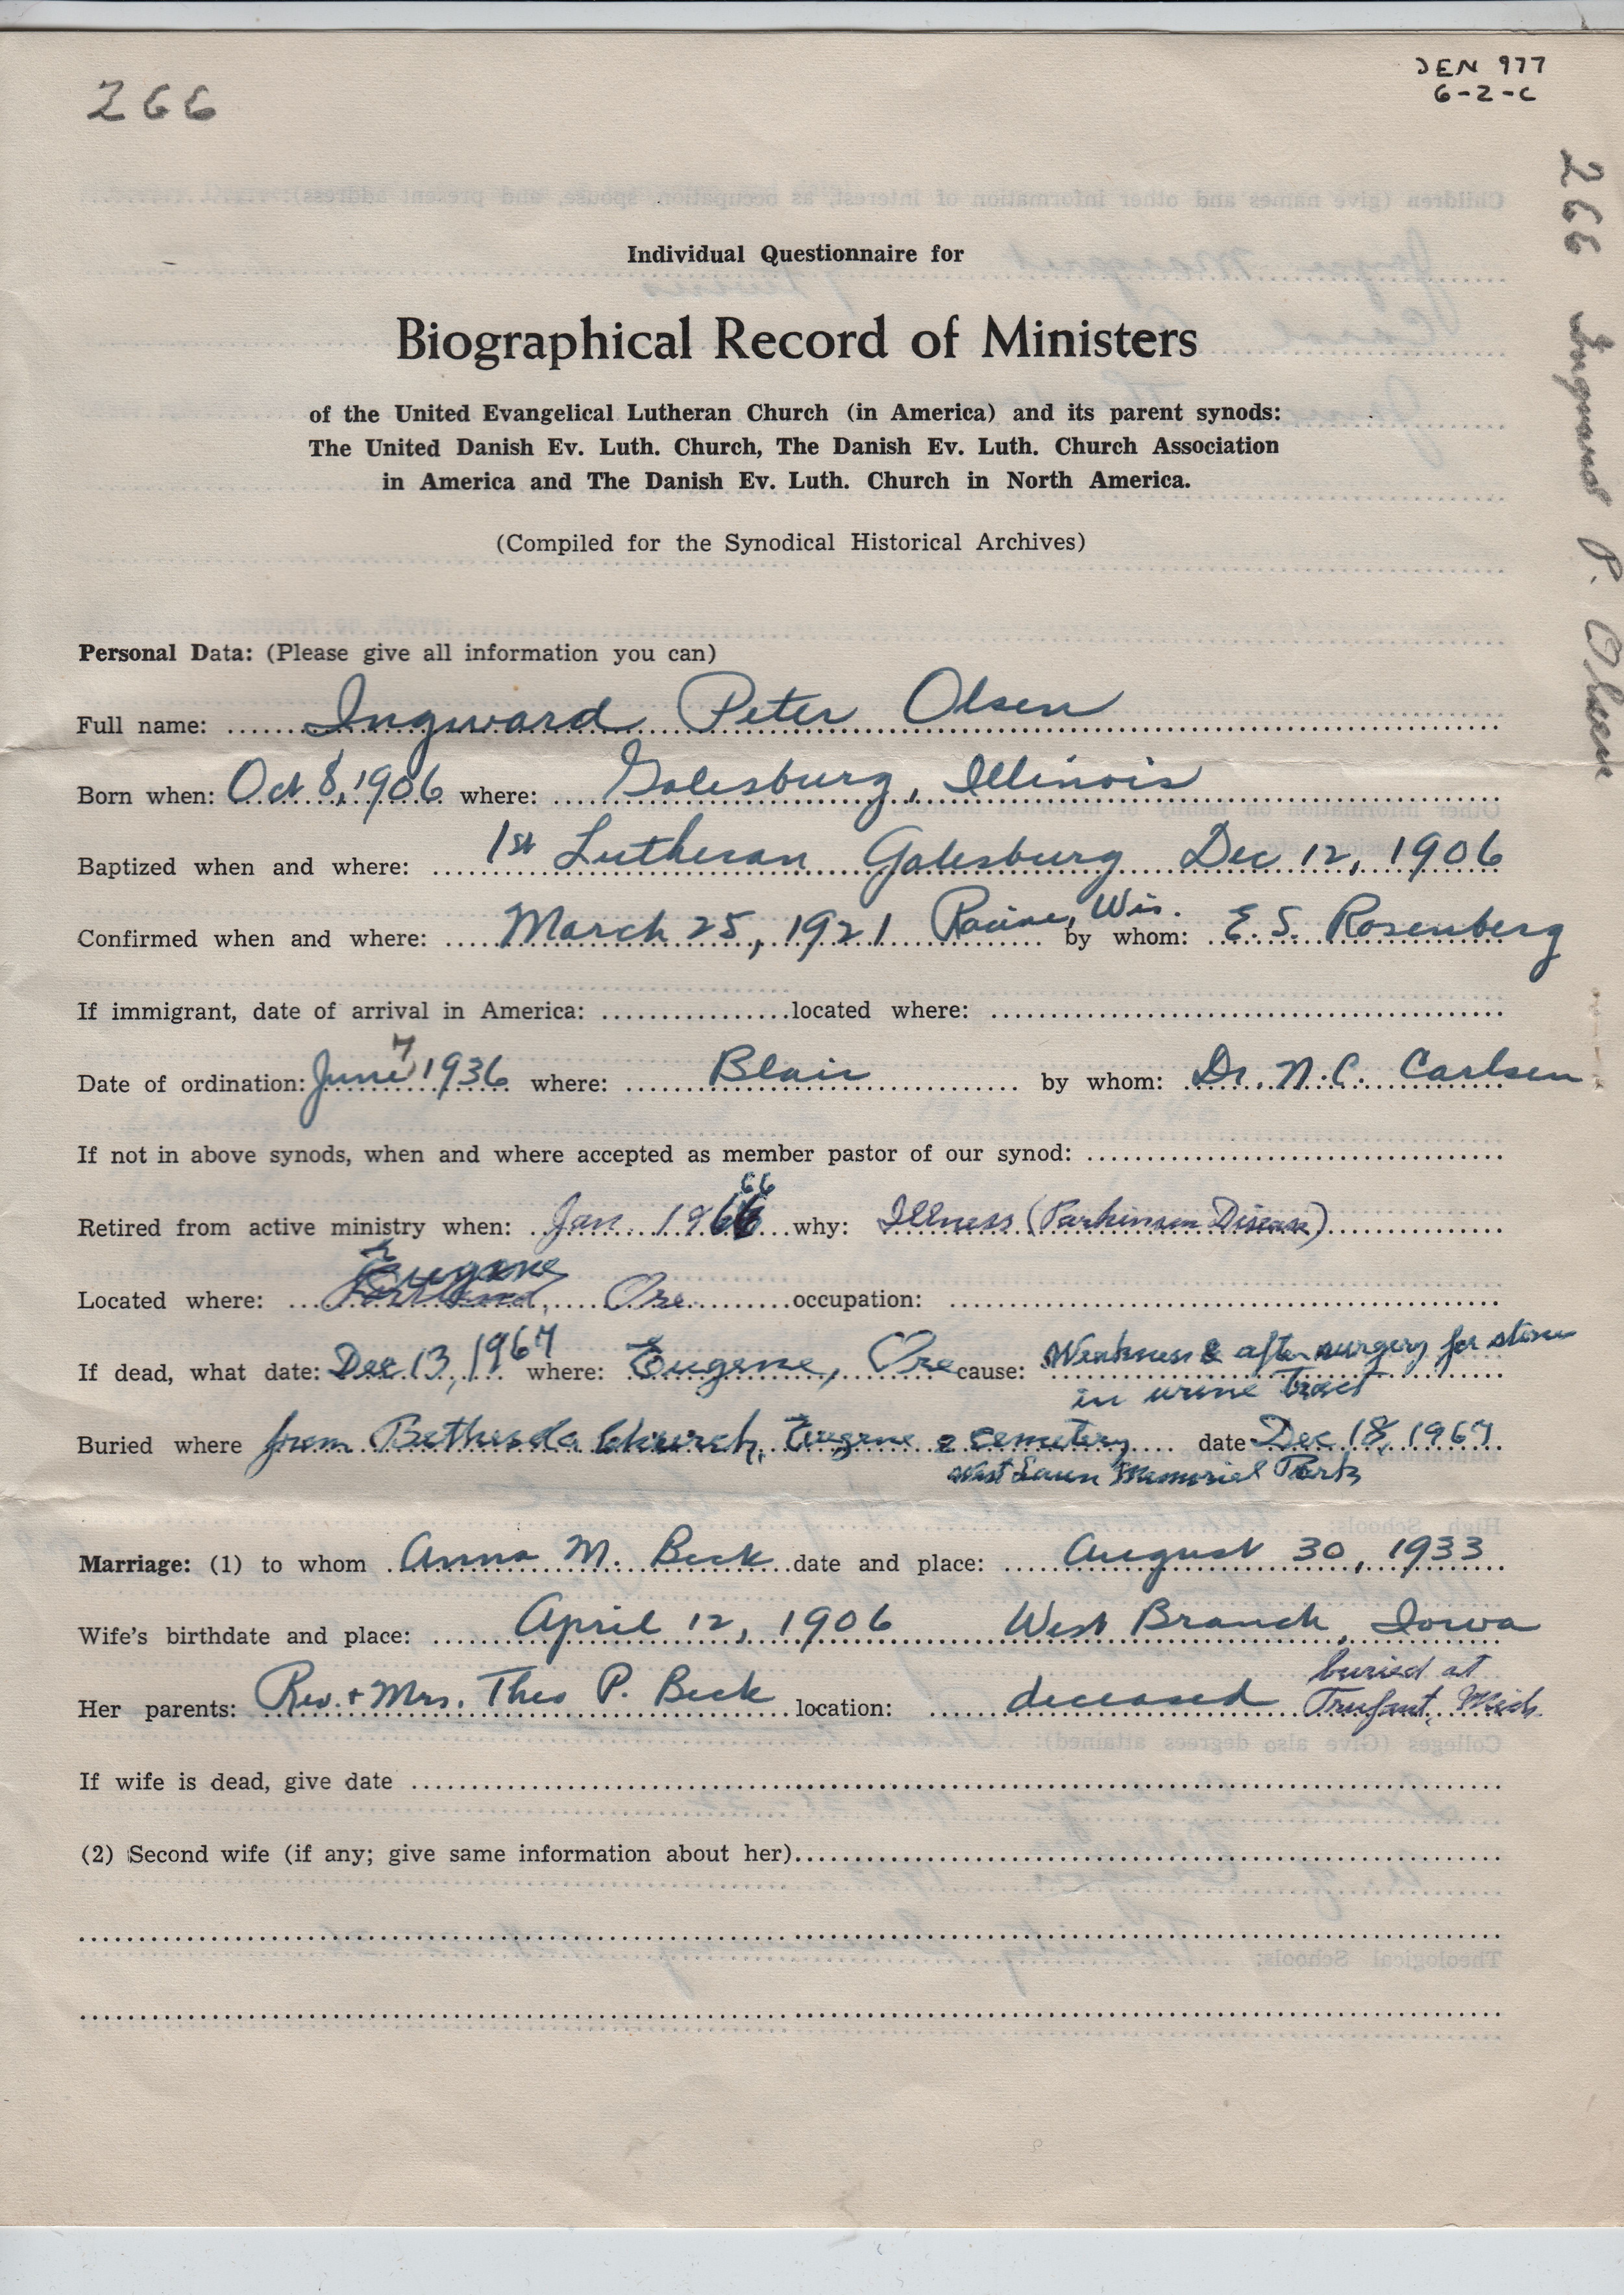 266
DEN 977
6-2-C
266 Ingward P. Olsen
Individual Questionnaire for
Biographical Record of Ministers
of the United Evangelical Lutheran Church (in America) and its parent synods:
The United Danish Ev. Luth. Church, The Danish Ev. Luth. Church Association
in America and The Danish Ev. Luth. Church in North America.
(Compiled for the Synodical Historical Archives)
Personal Data: (Please give all information you can)
Full name: Ingward Peter Olsen
Born when: Oct 8, 1906 where: Galesburg, Illinois
Baptized when and where: 1st Lutheran Galesburg Dec 12, 1906
Confirmed when and where: March 25, 1921 Racine, Wis. by whom: E. S. Rosenberg
If immigrant, date of arrival in America: located where:
Date of ordination: June 7 1936 where: Blair by whom: Dr. N. C. Carlsen
If not in above synods, when and where accepted as member pastor of our synod:
66
Retired from active ministry when: Jan. 1966 why: Illness (Parkinson Disease)
Eugene
Located where: Portland, Ore. occupation:
If dead, what date: Dec 13, 1967 where: Eugene, Ore cause: Weakness & after surgery for stone
in urine tract
Buried where from Bethesda Church, Eugene cemetery date Dec 18, 1967
West Lawn Memorial Park
Marriage: (1) to whom Anna M. Beck date and place: August 30, 1933
Wife's birthdate and place: April 12, 1906 West Branch, Iowa
Her parents: Rev. + Mrs. Theo P. Beck location: deceased buried at
Trufant, Mich.
If wife is dead, give date
(2) Second wife (if any; give same information about her)